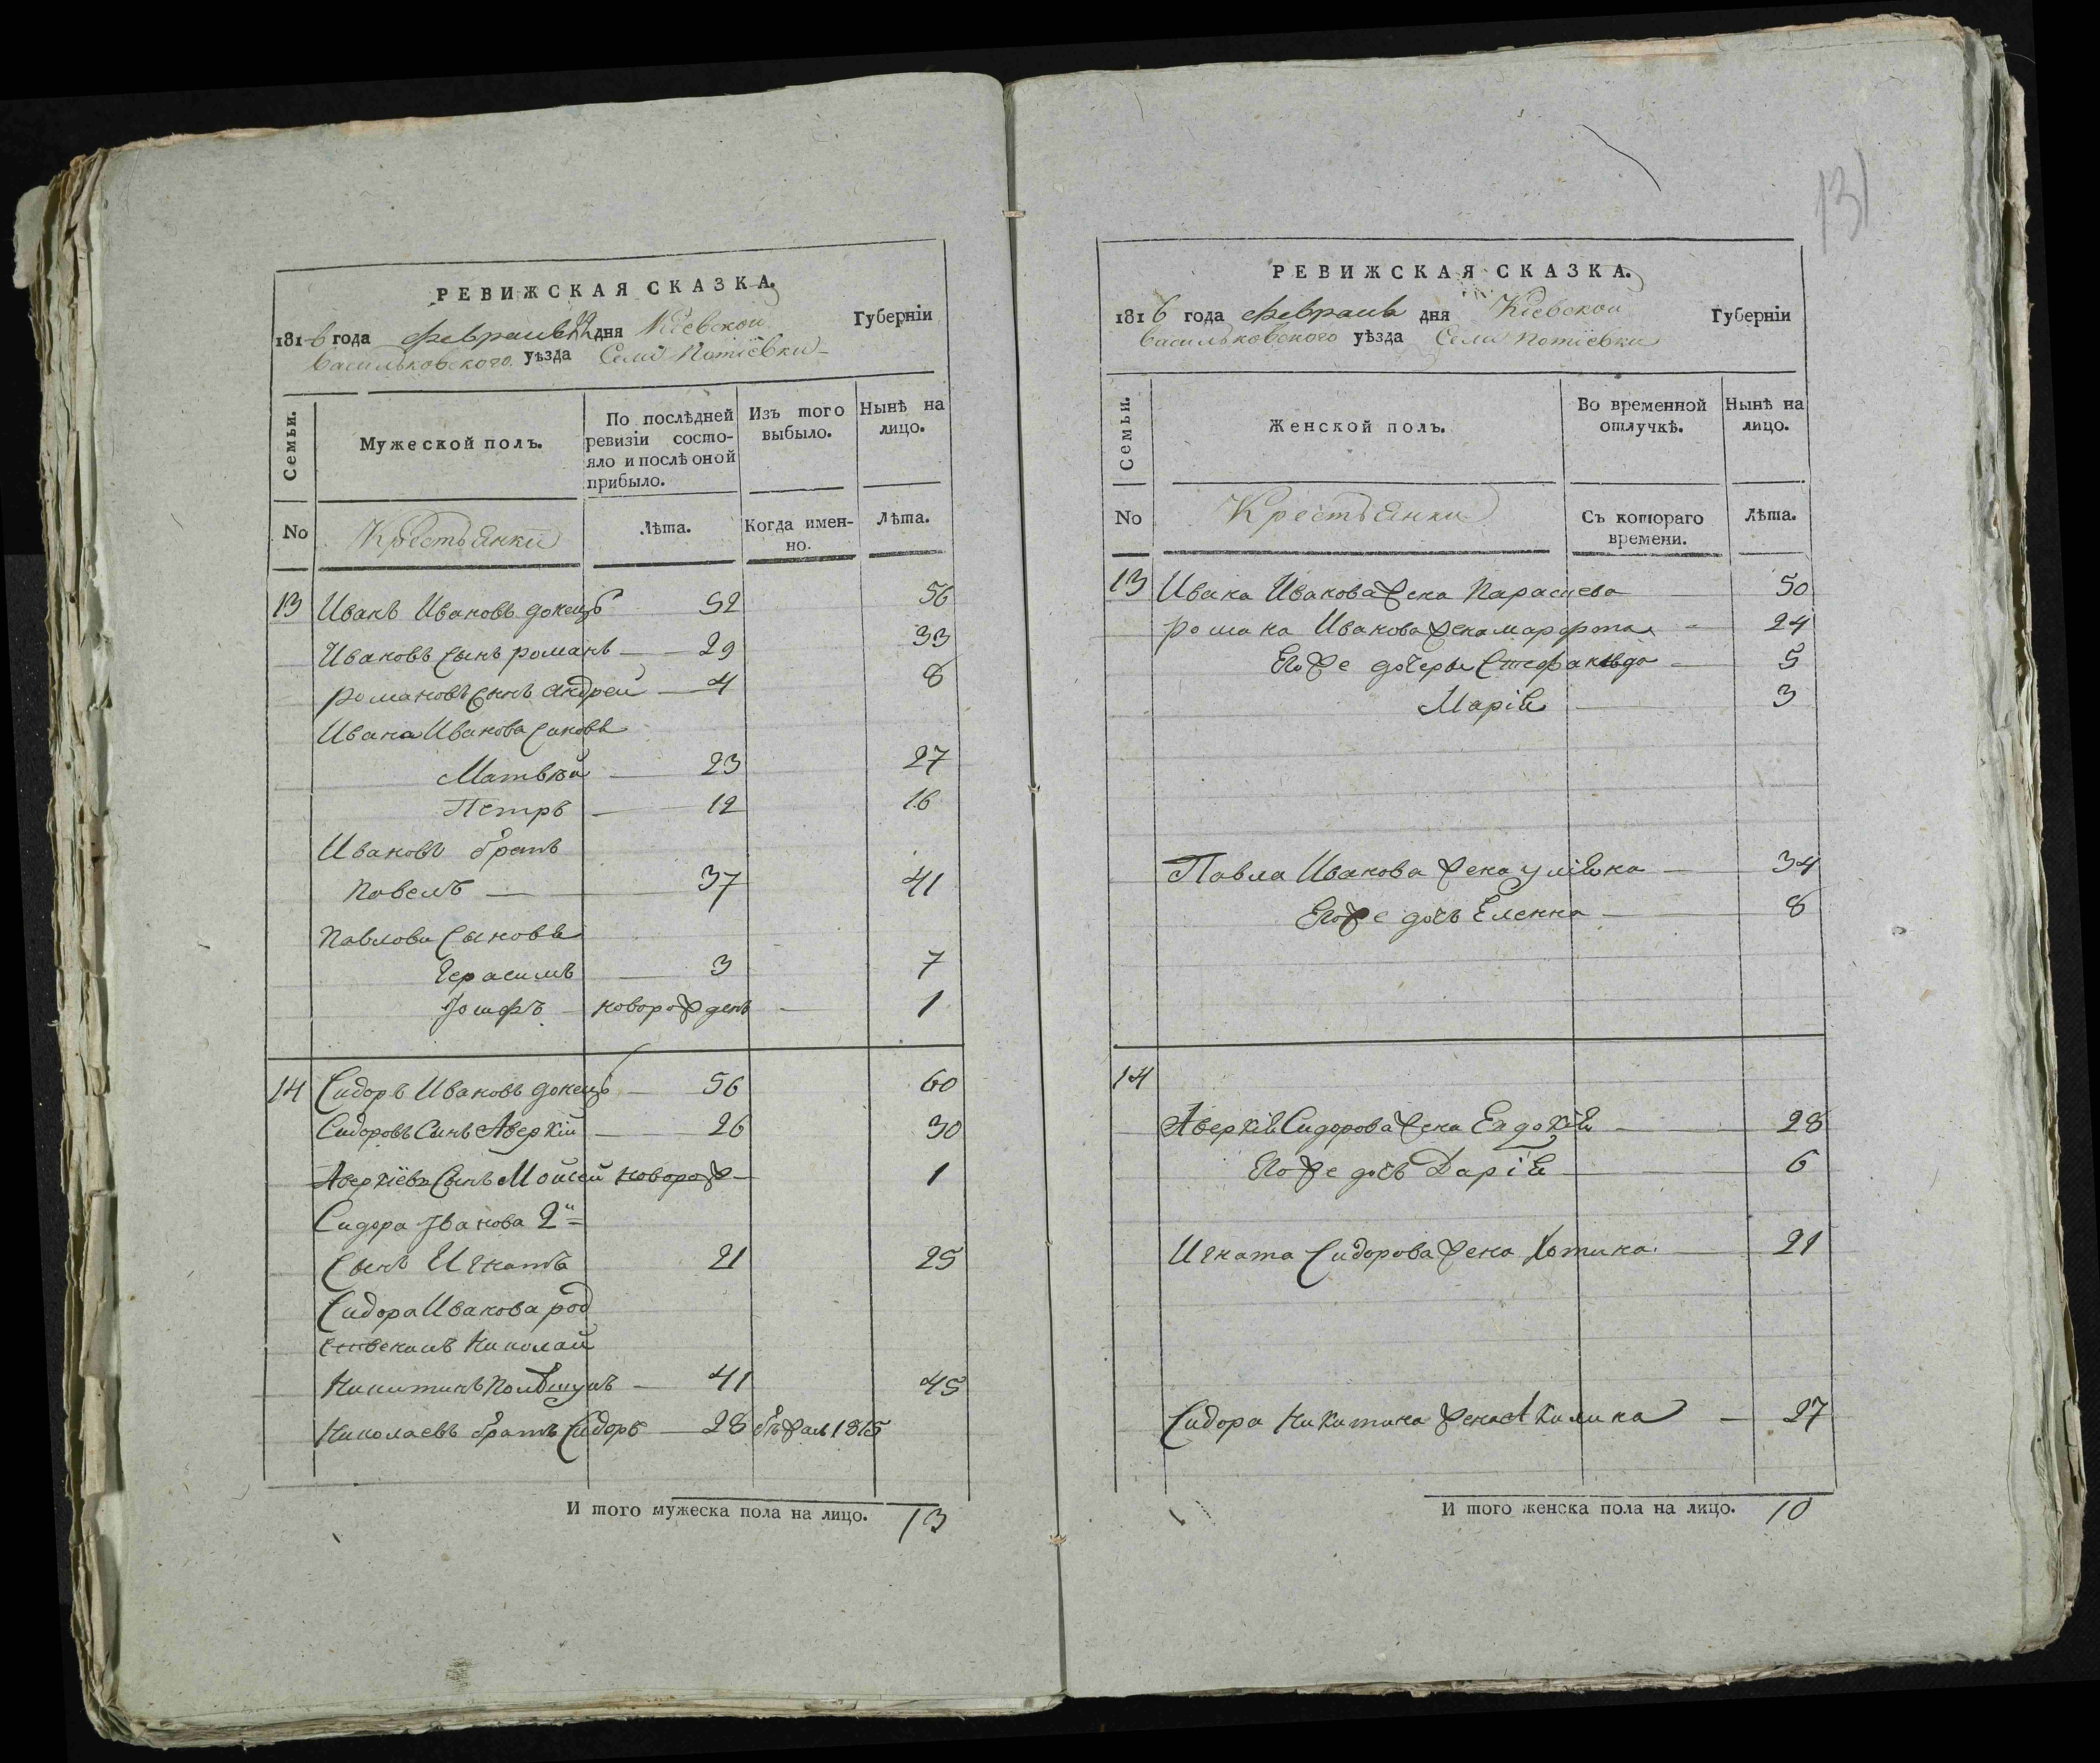 131
РЕВИЖСКАЯ СКАЗКА.
1816 года февраль дня Кіевской Губерніи
Васильковского уѣзда Села Потіевки
Семьи.
Мужеской полъ.
По послѣдней ревизіи состо-
яло и послѣ оной
прибыло.
Изъ того выбыло.
Нынѣ на лицо.
No
Лѣта.
Когда имен-
но.
Лѣта.
13 Иванъ Ивановъ донецъ 52 56
Ивановъ сынъ романъ 29 33
романовъ сынъ андрей 4 8
Ивана Иванова синовя
Матвѣй 23 27
Петръ 12 16
Ивановъ братъ
Павелъ 37 41
Павловы сыновя
Герасимъ 3 7
Іосифъ новорожденъ 1
14 Сидоръ Ивановъ донецъ 56 60
Сидоровъ Синъ Аверкій 26 30
Аверкіевъ Синъ Мойсей новорож 1
Сидора Іванова 2й
Сынъ Игнатъ 21 25
Сидора Иванова род
ственикъ Николай
Никитинъ 41 45
Николаевъ братъ Сидоръ 28 бѣжалъ 1815
И того мужеска пола на лицо. 13
РЕВИЖСКАЯ СКАЗКА.
1816 года февраль дня Кіевской Губерніи
Васильковского уѣзда Села Потіевки
Семьи.
Женской полъ.
Во временной
отлучкѣ.
Нынѣ на
лицо.
No
Крестьянки
Съ котораго
времени.
Лѣта.
13 Ивана Иванова жена Параскева 50
романа Иванова жена марфта 24
Его же дочеры Стефанида 5
Марія 3
Павла Иванова жена уліяна 34
Его же дочь Еленна 8
14
Аверкія Сидорова жена Евдокія 28
Его же дочь Дарія 6
Игната Сидорова жена Фотина 21
Сидора Никитина жена Акилина 27
И того женска пола на лицо. 10